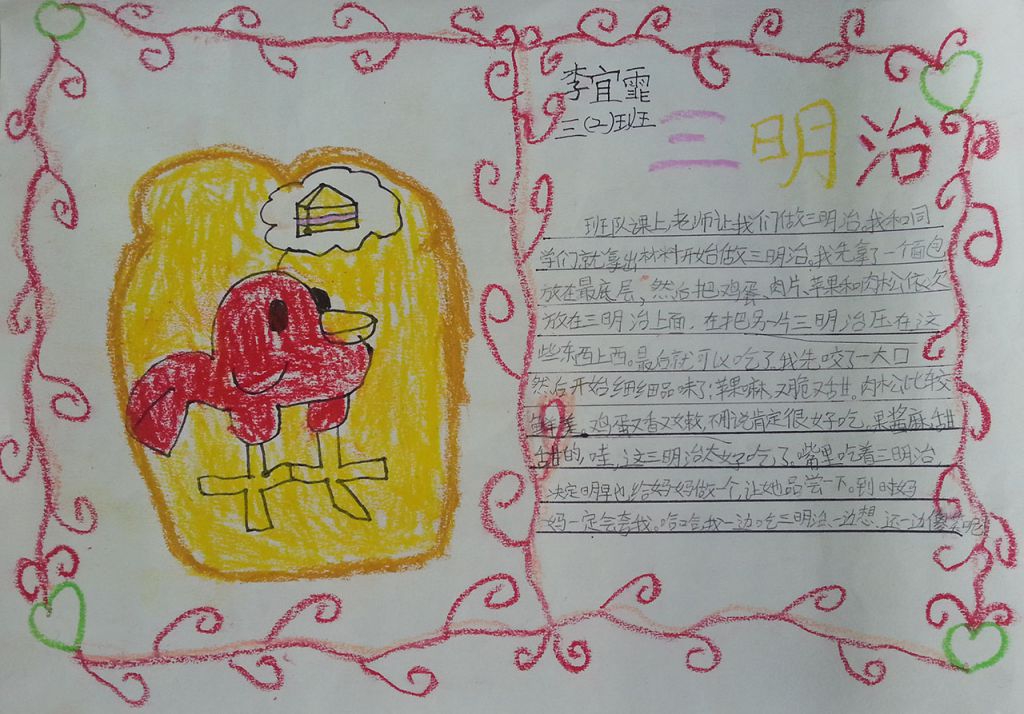 李宜霏
三(2)班
三明治
班队课上,老师让我们做三明治。我和同
学们就拿出材料开始做三明治。我先拿了一个面包
放在最底层,然后把鸡蛋、肉片、苹果和肉松依次
放在三明治上面,在把另一片三明治压在这
些东西上西。最后就可以吃了。我先咬了一大口
然后开始细细品味了:苹果嘛,又脆又甜。肉松比较
鲜美。鸡蛋又香又嫩,不用说肯定很好吃,果酱麻,甜
甜的,哇,这三明治太好吃了。嘴里吃着三明治,
决定明早也给妈妈做一个,让她品尝一下。到时妈
妈一定会夸我。哈哈我一边吃三明治一边想,还一边傻笑呢